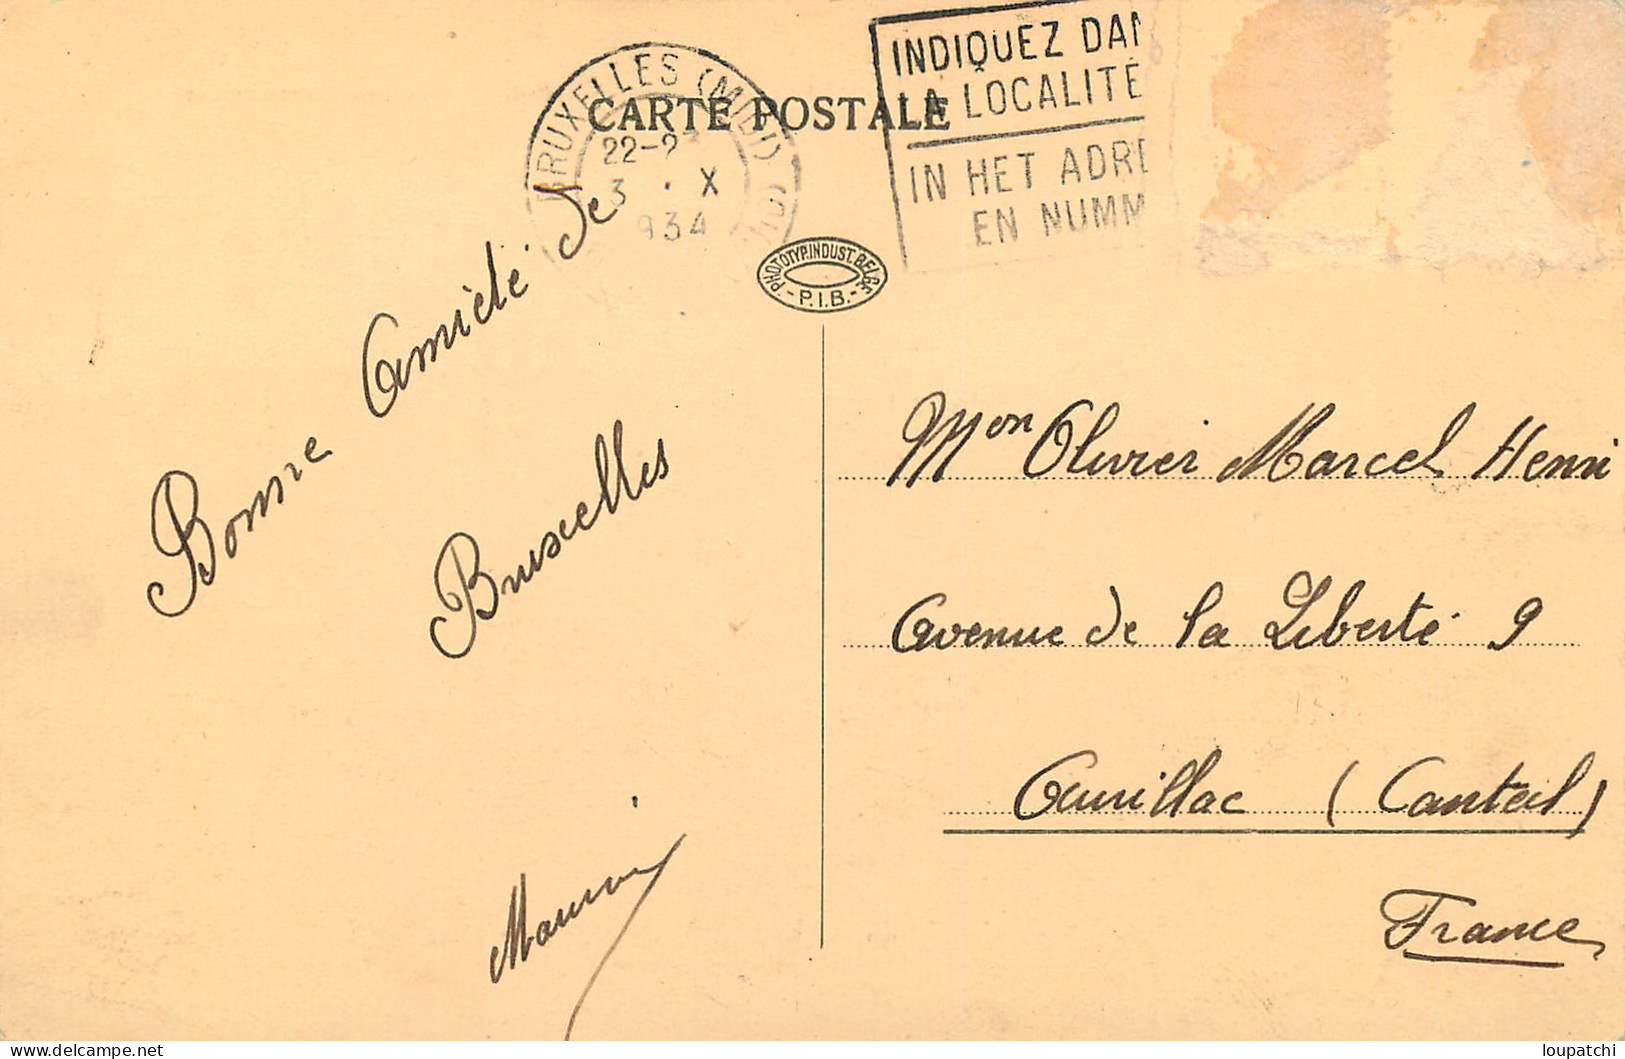 BRUXELLES (MIDI)
22-2
3 · X
934
CARTE POSTALE
INDIQUEZ DAN
LA LOCALITÉ
IN HET ADRE
EN NUMM
PHOTOTYP. INDUST. BELGE
- P.I.B. -
Bonne Amitié de
Bruxelles
Mon Olivier Marcel Henri
Avenue de la Liberté 9
Aurillac (Cantal)
France
loupatchi